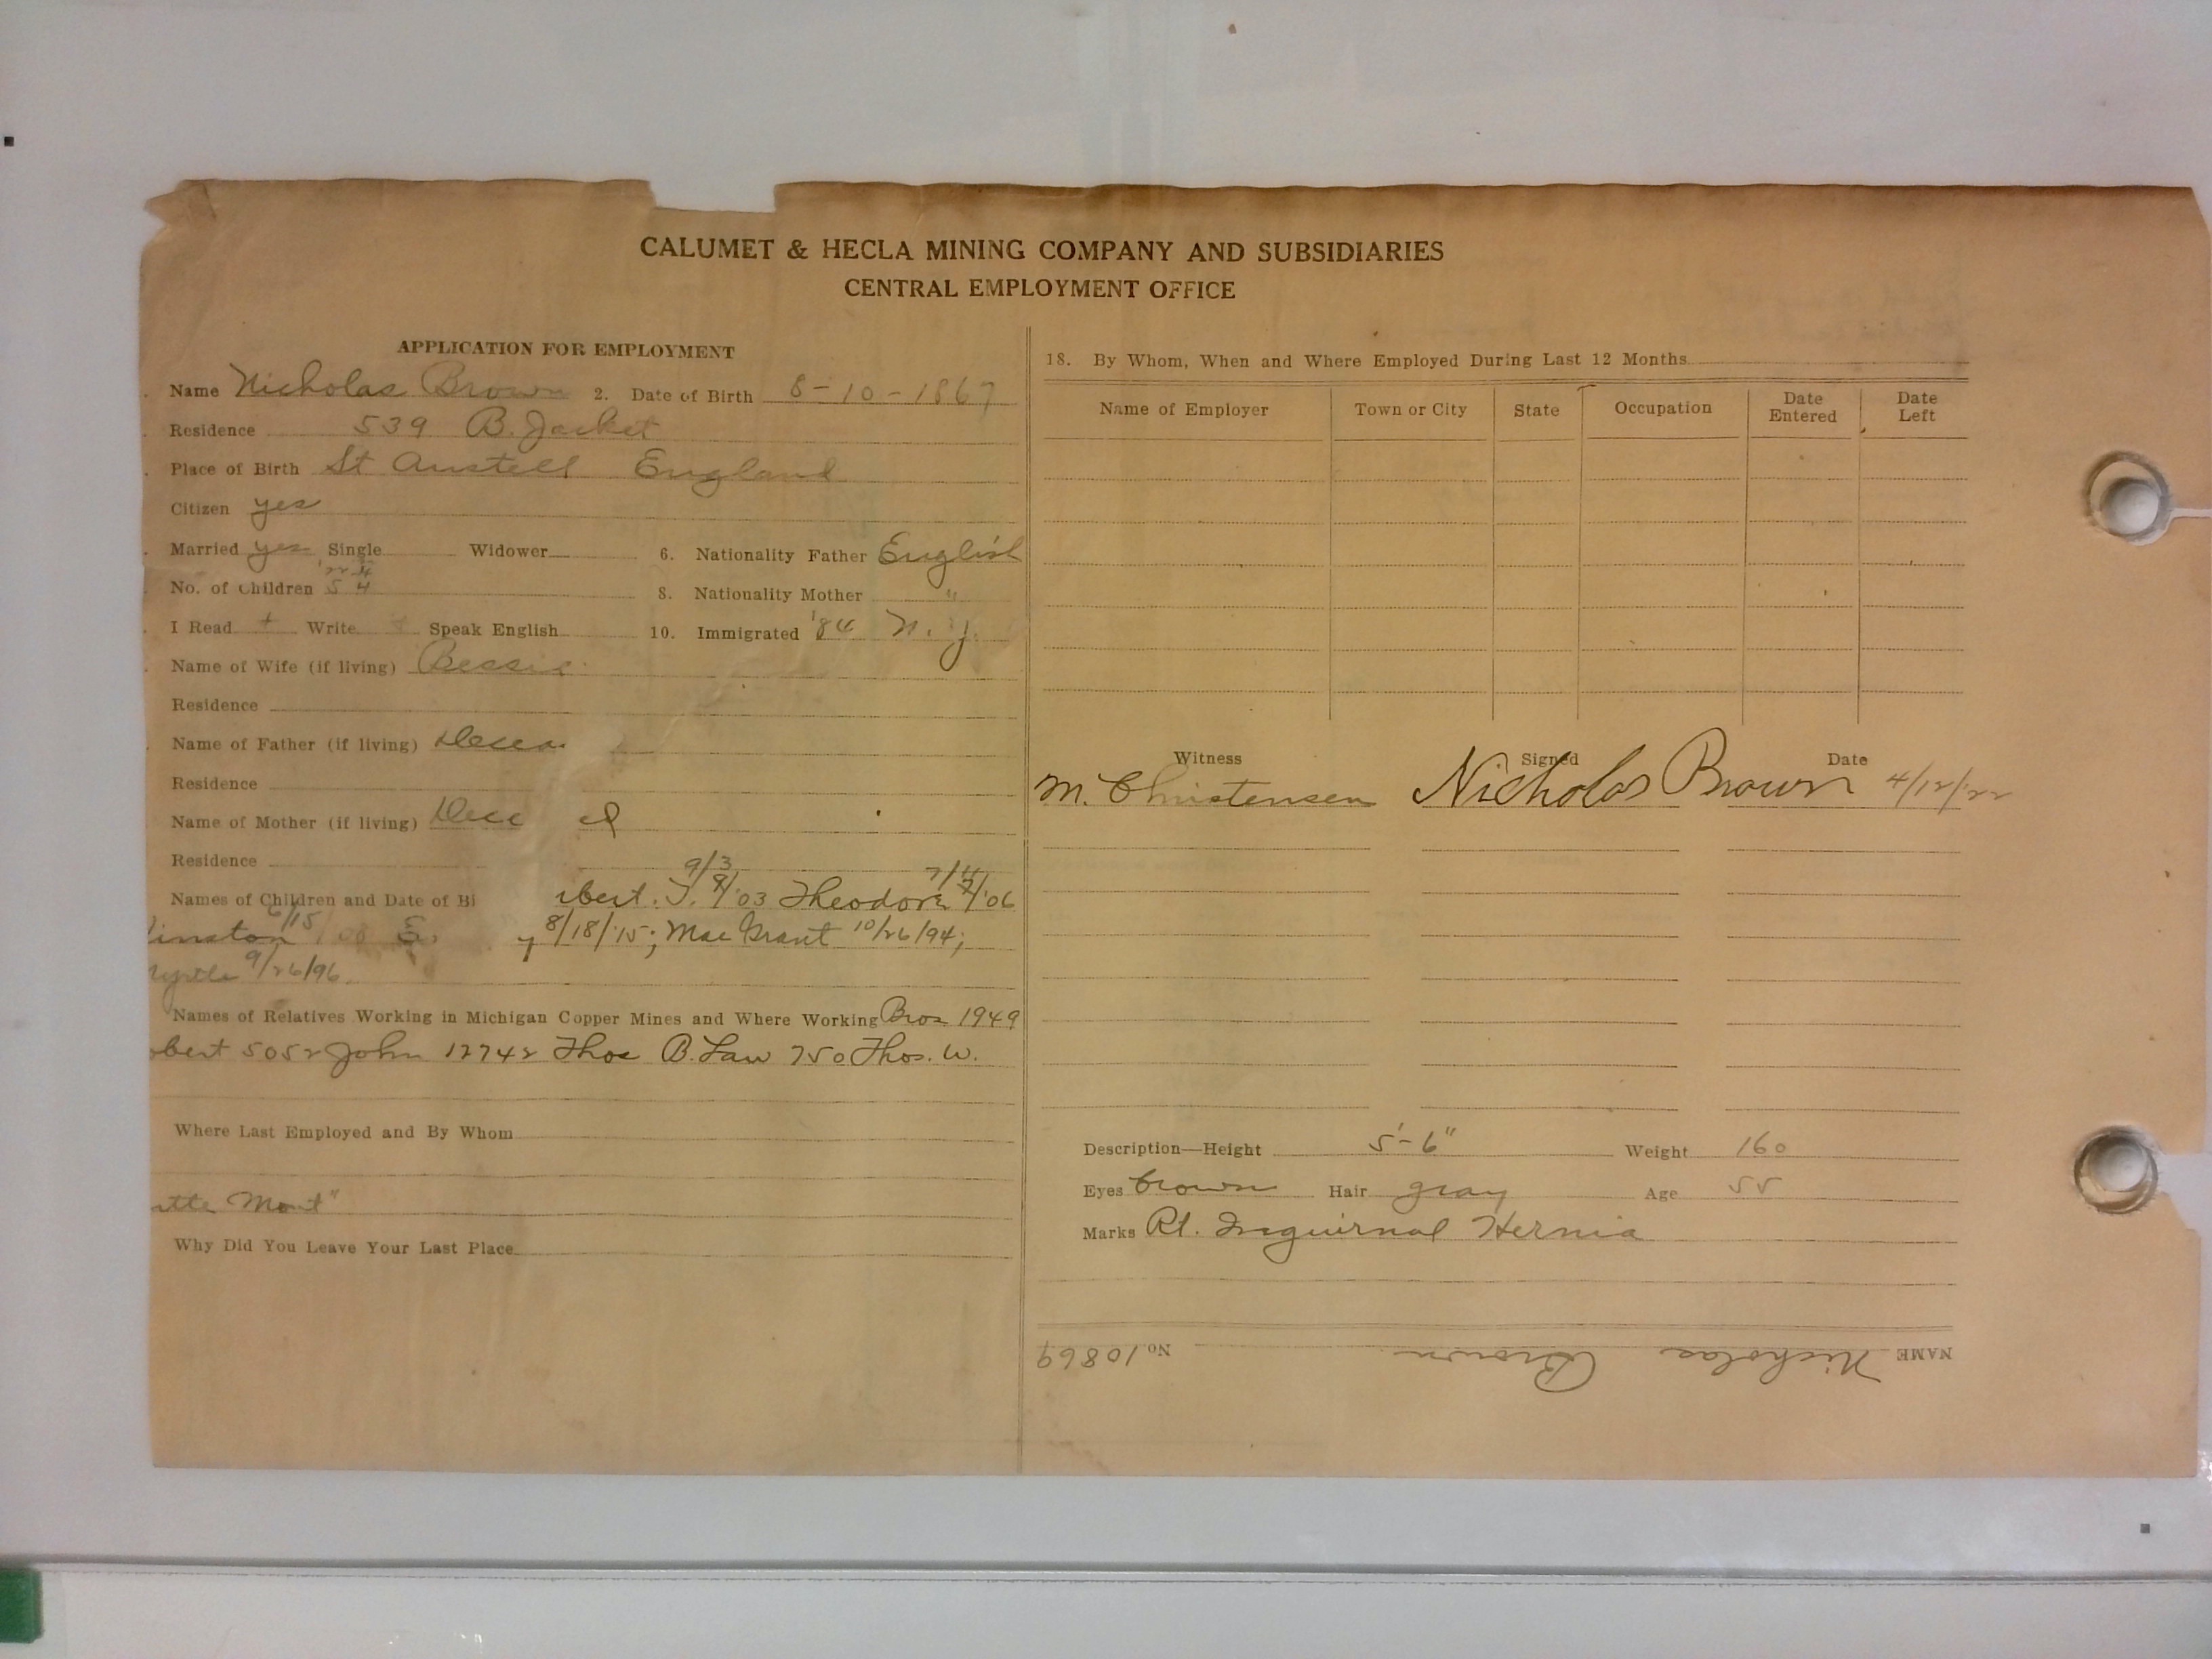 CALUMET & HECLA MINING COMPANY AND SUBSIDIARIES
CENTRAL EMPLOYMENT OFFICE
APPLICATION FOR EMPLOYMENT
Name Nicholas Brown 2. Date of Birth 8-10-1867
Residence 539 B. Jacket
Place of Birth St Austell England
Citizen yes
Married yes Single Widower 6. Nationality Father English
'22
No. of Children 5 4 8. Nationality Mother "
I Read + Write + Speak English 10. Immigrated '84 N.Y.
Name of Wife (if living) Bessie
Residence
Name of Father (if living) Decea
Residence
Name of Mother (if living) Dece d
Residence
9/3
Names of Children and Date of Bi lbert. T. '03 Theodore '06
6/15
inston E. y 8/18/'15; Mae Grant 10/26/94;
yrtle 9/26/96.
Names of Relatives Working in Michigan Copper Mines and Where Working Bros 1949
obert 5052 John 12742 Thos B. Law 750 Thos. W.
Where Last Employed and By Whom
utte Mont"
Why Did You Leave Your Last Place
18. By Whom, When and Where Employed During Last 12 Months
Name of Employer Town or City State Occupation Date Entered Date Left
Witness Signed Date
M. Christensen Nicholas Brown 4/12/'22
Description—Height 5'-6" Weight 160
Eyes brown Hair gray Age 55
Marks Rt. Inguirnal Hernia
NAME Nicholas Brown No. 10869